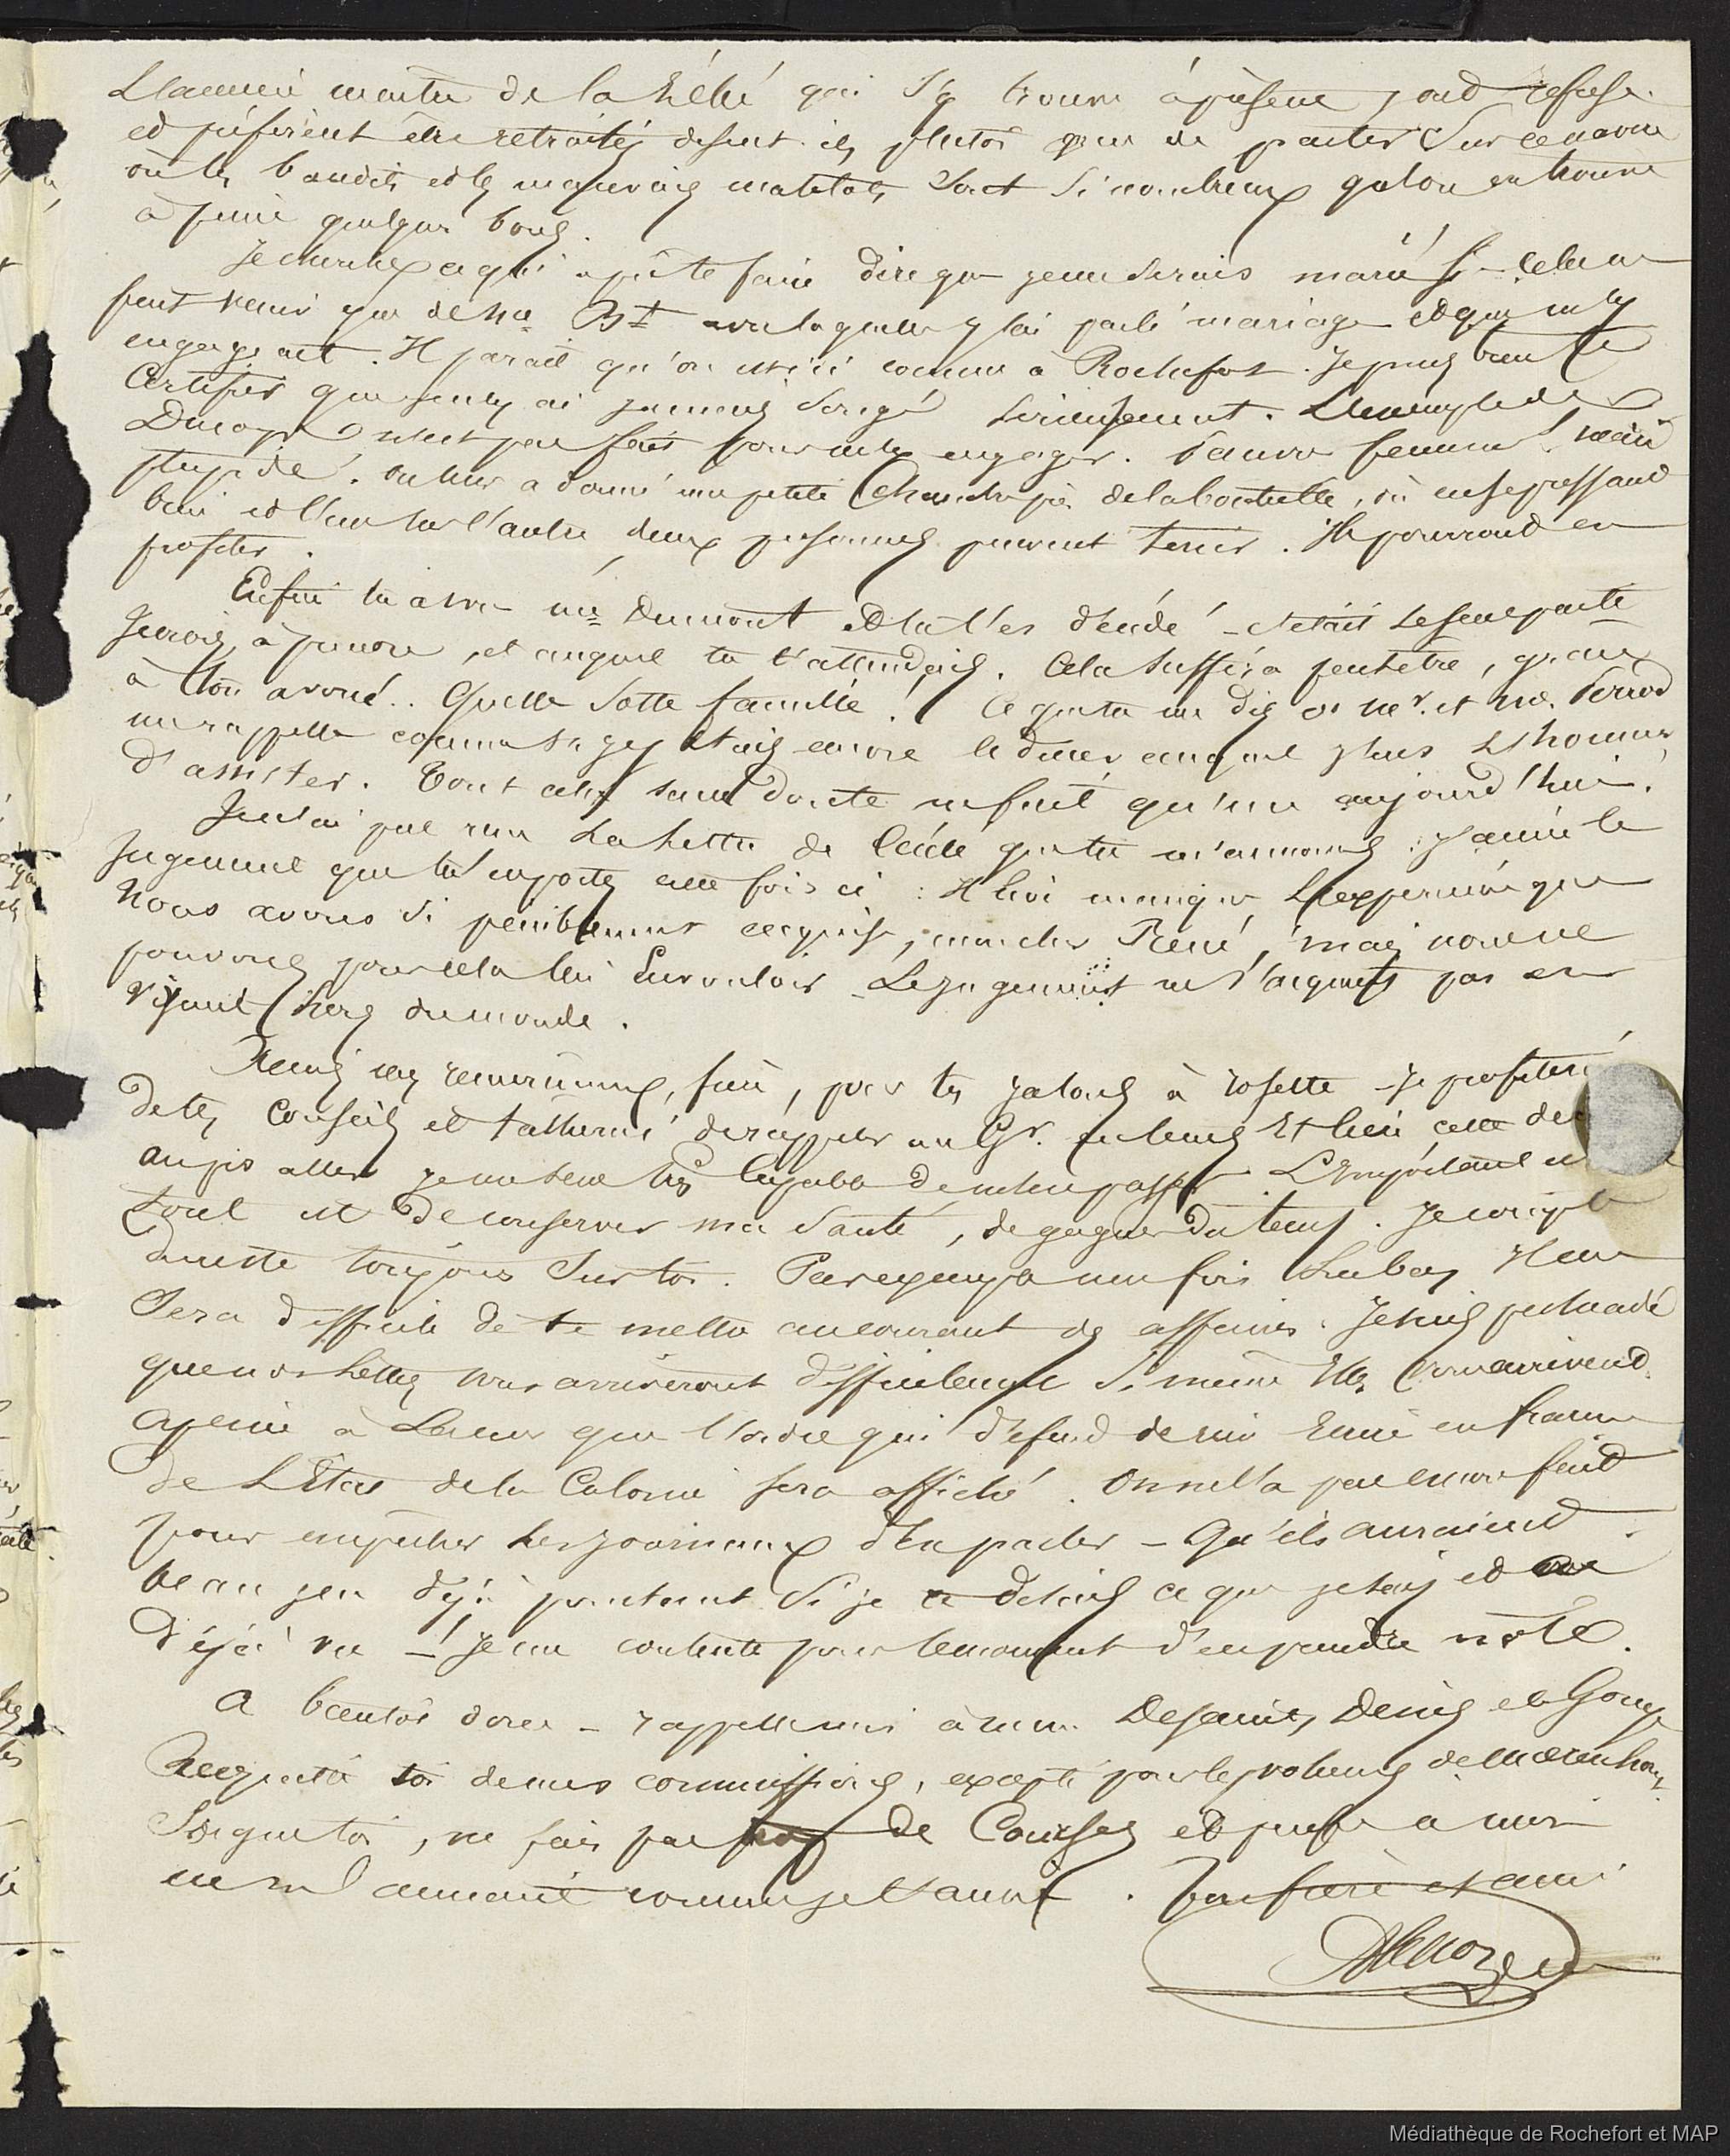 L'ancien maître de la Hébé qui s'y trouve à présent, ont refusé
et préfèrent être retraités disent-ils plutôt que de partir sur ce navire
où les bandits et les mauvais matelots sont si nombreux qu'on en trouve
à peine quelques bons.
Je cherche ce qui a pû te faire dire que je me serais marié si – Cela ne
peut venir que de Me Bt avec laquelle j'ai parlé mariage et qui m'y
engageait. Il parait qu'on est ici comme à Rochefort. Je puis bien te
Certifier que je n'y ai jamais songé sérieusement. L'exemple de
n'est pas fait pour m'y engager. Pauvre femme! mari
stupide. On leur a donné une petite Chambre de la bouteille, où en se pressant
bien et l'un sur l'autre, deux personnes peuvent tenir. Ils pourront en
profiter.
Enfin tu as vu Me Dumont et tu l'es d'éudé – c'était le seul parti
je crois à prendre, et auquel tu t'attendais. Cela suffira peutetre,
à ton avoué.. Quelle sotte famille! Ce que tu me dis de Mr. et Me.
me rappelle comme si j'y étais encore le diner auquel j'eus l'honneur
d'assister. Tout cela sans doute ne fait qu'un aujourd'hui.
Je n'ai pas reçu la lettre de que tu m'annonces. J'aime le
jugement que tu en portes cette fois ci : Il lui manque l'expérience que
nous avons si péniblement acquise, mon cher René, mais nous ne
pouvons pour cela lui en vouloir – Le jugement ne s'acquiert pas en
vivant hors du monde.
Reçois mes remerciemens, frère, pour tes jalons à – je profiterai
de tes conseils et tâcherai de rappeler au Gr. en tems et lieu cette
au pis aller je me sens très capable de m'en passer. L'important
tout est de conserver ma santé, de gagner du tems. Je compte
du reste toujours sur toi. Par exemple une fois là bas il me
sera difficile de te mettre au courant des affaires. Je suis persuadé
que nos lettres vous arriveront difficilement si même elles vous arrivent.
A peine à que l'ordre qui défend de rien écrire en france
de L'Etat de la Colonie sera affiché. On ne l'a pas encore fait
pour empêcher les journaux d'en parler – Qu'ils auraient
beau jeu déjà pourtant si je disais ce que je sais et ai
déjà vu – Je me contente pour le moment d'en prendre note.
A bientôt donc – rappelle moi à mm. Desaint, Denis et
Acquitte toi de mes commissions, excepté pour le
Soigne toi, ne fais pas trop de Courses et pense à moi
en m'aimant comme je t'aime. Ton frère et ami